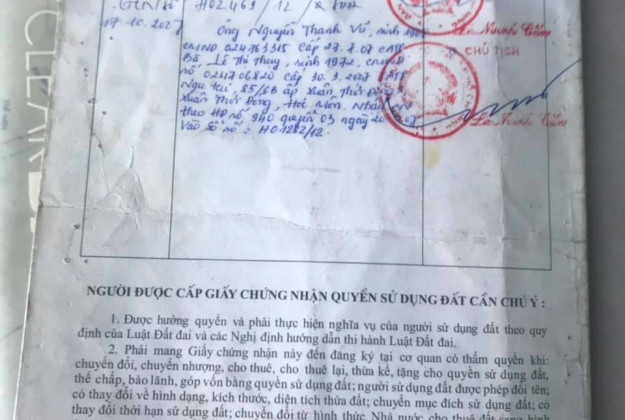 CLEAR
Số H02463/12
19.10.2007
Ông Nguyễn Thanh Vũ, sinh
CMND 024763315 cấp 27.7.07
Bà Lê Thị Thuy, sinh 1972, CMND
số 024706820 cấp 30.3.2007
Ngụ tại 85/6B ấp Xuân Thới Đông
Xuân Thới Đông, Hóc Môn. Nhận
theo HĐ số 940 quyển 03 ngày
Vào sổ số: H01282/12.
CHỦ TỊCH
NGƯỜI ĐƯỢC CẤP GIẤY CHỨNG NHẬN QUYỀN SỬ DỤNG ĐẤT CẦN CHÚ Ý :
1. Được hưởng quyền và phải thực hiện nghĩa vụ của người sử dụng đất theo quy
định của Luật Đất đai và các Nghị định hướng dẫn thi hành Luật Đất đai.
2. Phải mang Giấy chứng nhận này đến đăng ký tại cơ quan có thẩm quyền khi:
chuyển đổi, chuyển nhượng, cho thuê, cho thuê lại, thừa kế, tặng cho quyền sử dụng đất,
thế chấp, bảo lãnh, góp vốn bằng quyền sử dụng đất; người sử dụng đất được phép đổi tên;
có thay đổi về hình dạng, kích thước, diện tích thửa đất; chuyển mục đích sử dụng đất; có
thay đổi thời hạn sử dụng đất; chuyển đổi từ hình thức Nhà nước cho thuê đất sang hình